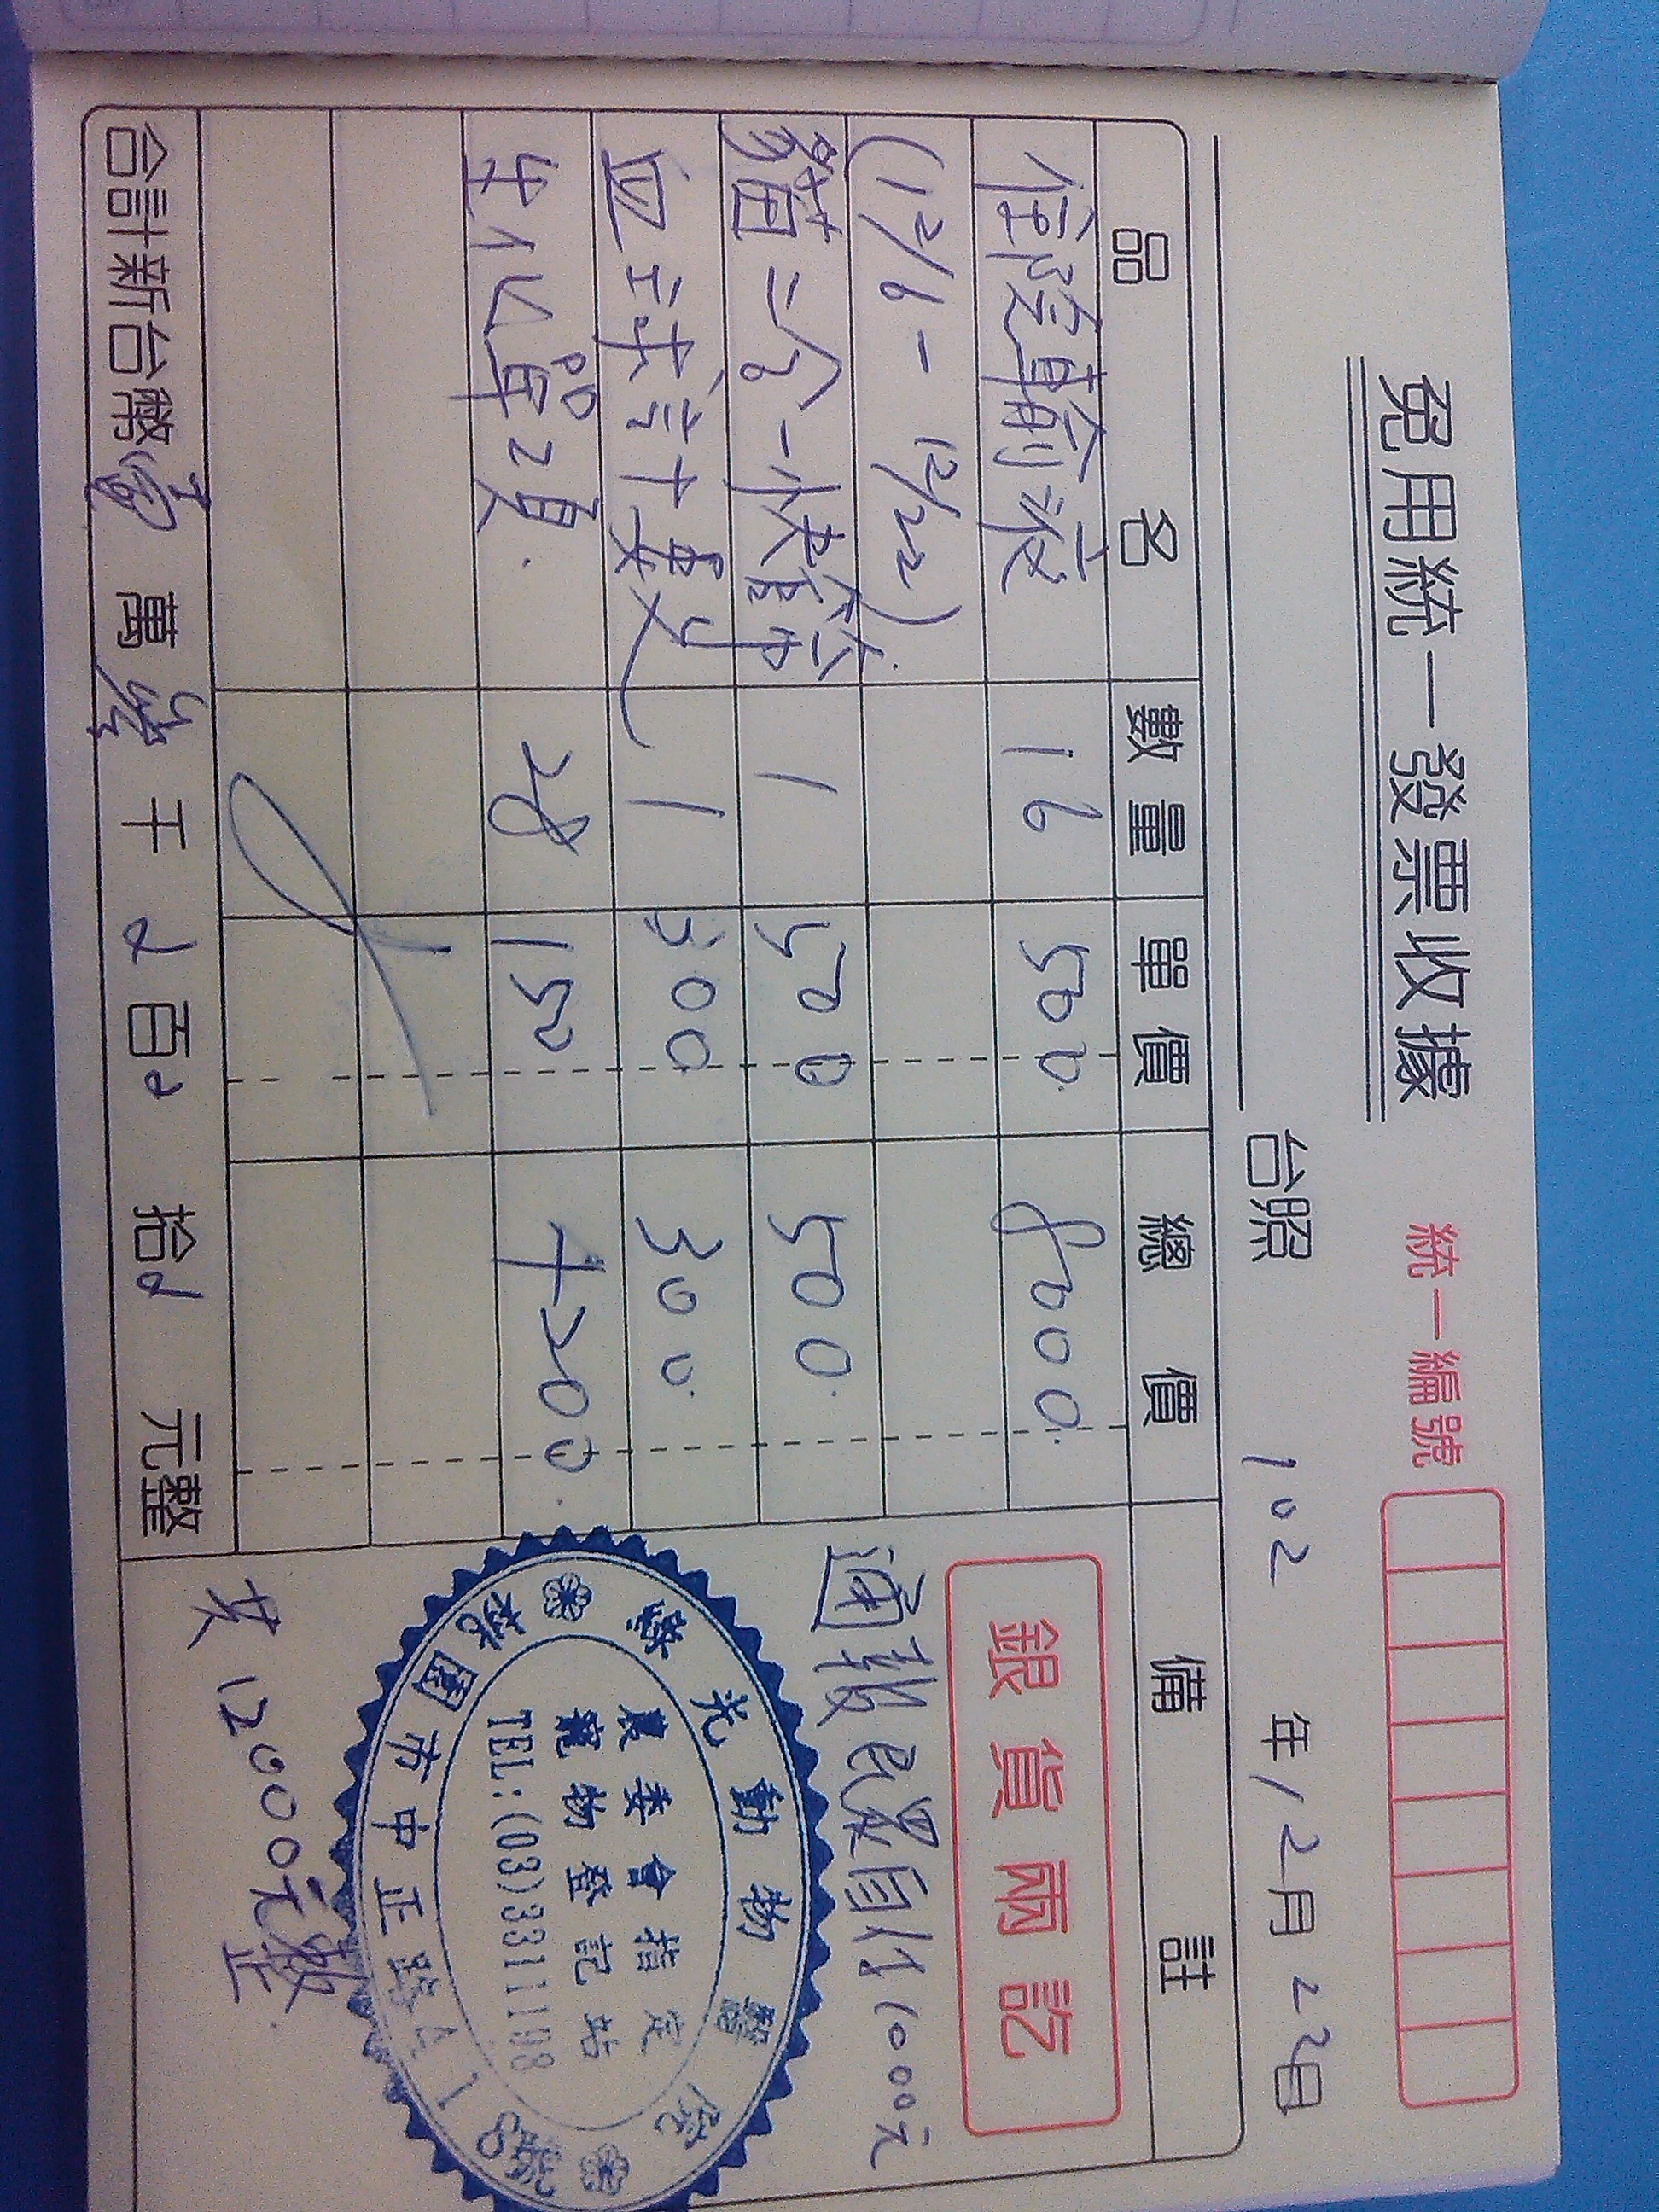 免用統一發票收據
統一編號
台照
102 年 12 月 22 日
品名 數量 單價 總價 備註
住院輸液 16 500 8000
(12/6 - 12/22)
貓三合一快篩 1 500 500
血球計數 1 300 300
生化單項 28 150 4200
銀貨兩訖
通報民眾自付1000元
光動物醫院
農委會指定
寵物登記站
TEL:(03)3311108
桃園市中正路
合計新台幣 壹 萬 貳 千 0 百 0 拾 0 元整
共 12000元整